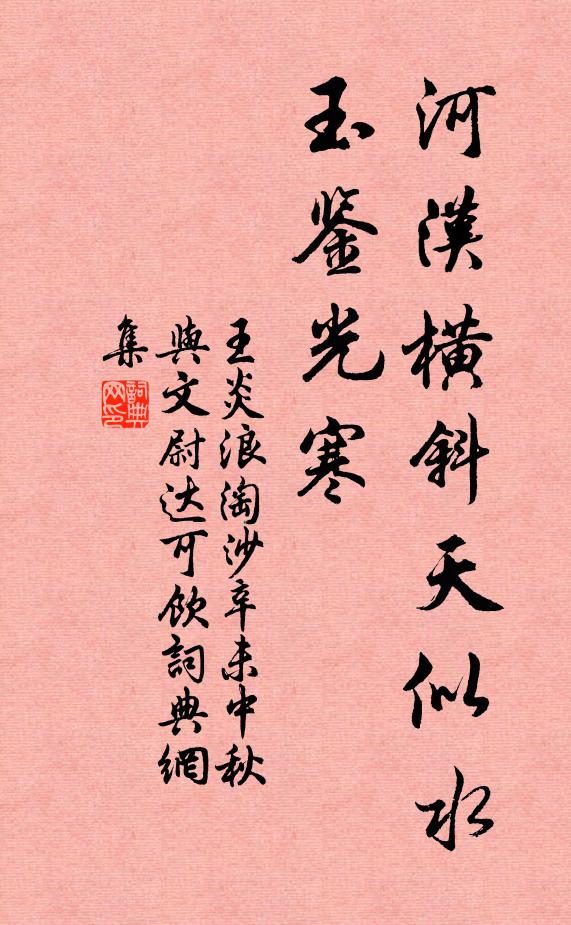 河漢橫斜天似水
玉鉴光寒
王炎浪淘沙辛未中秋
與文尉达可飲詞典網
集
詞典
网印